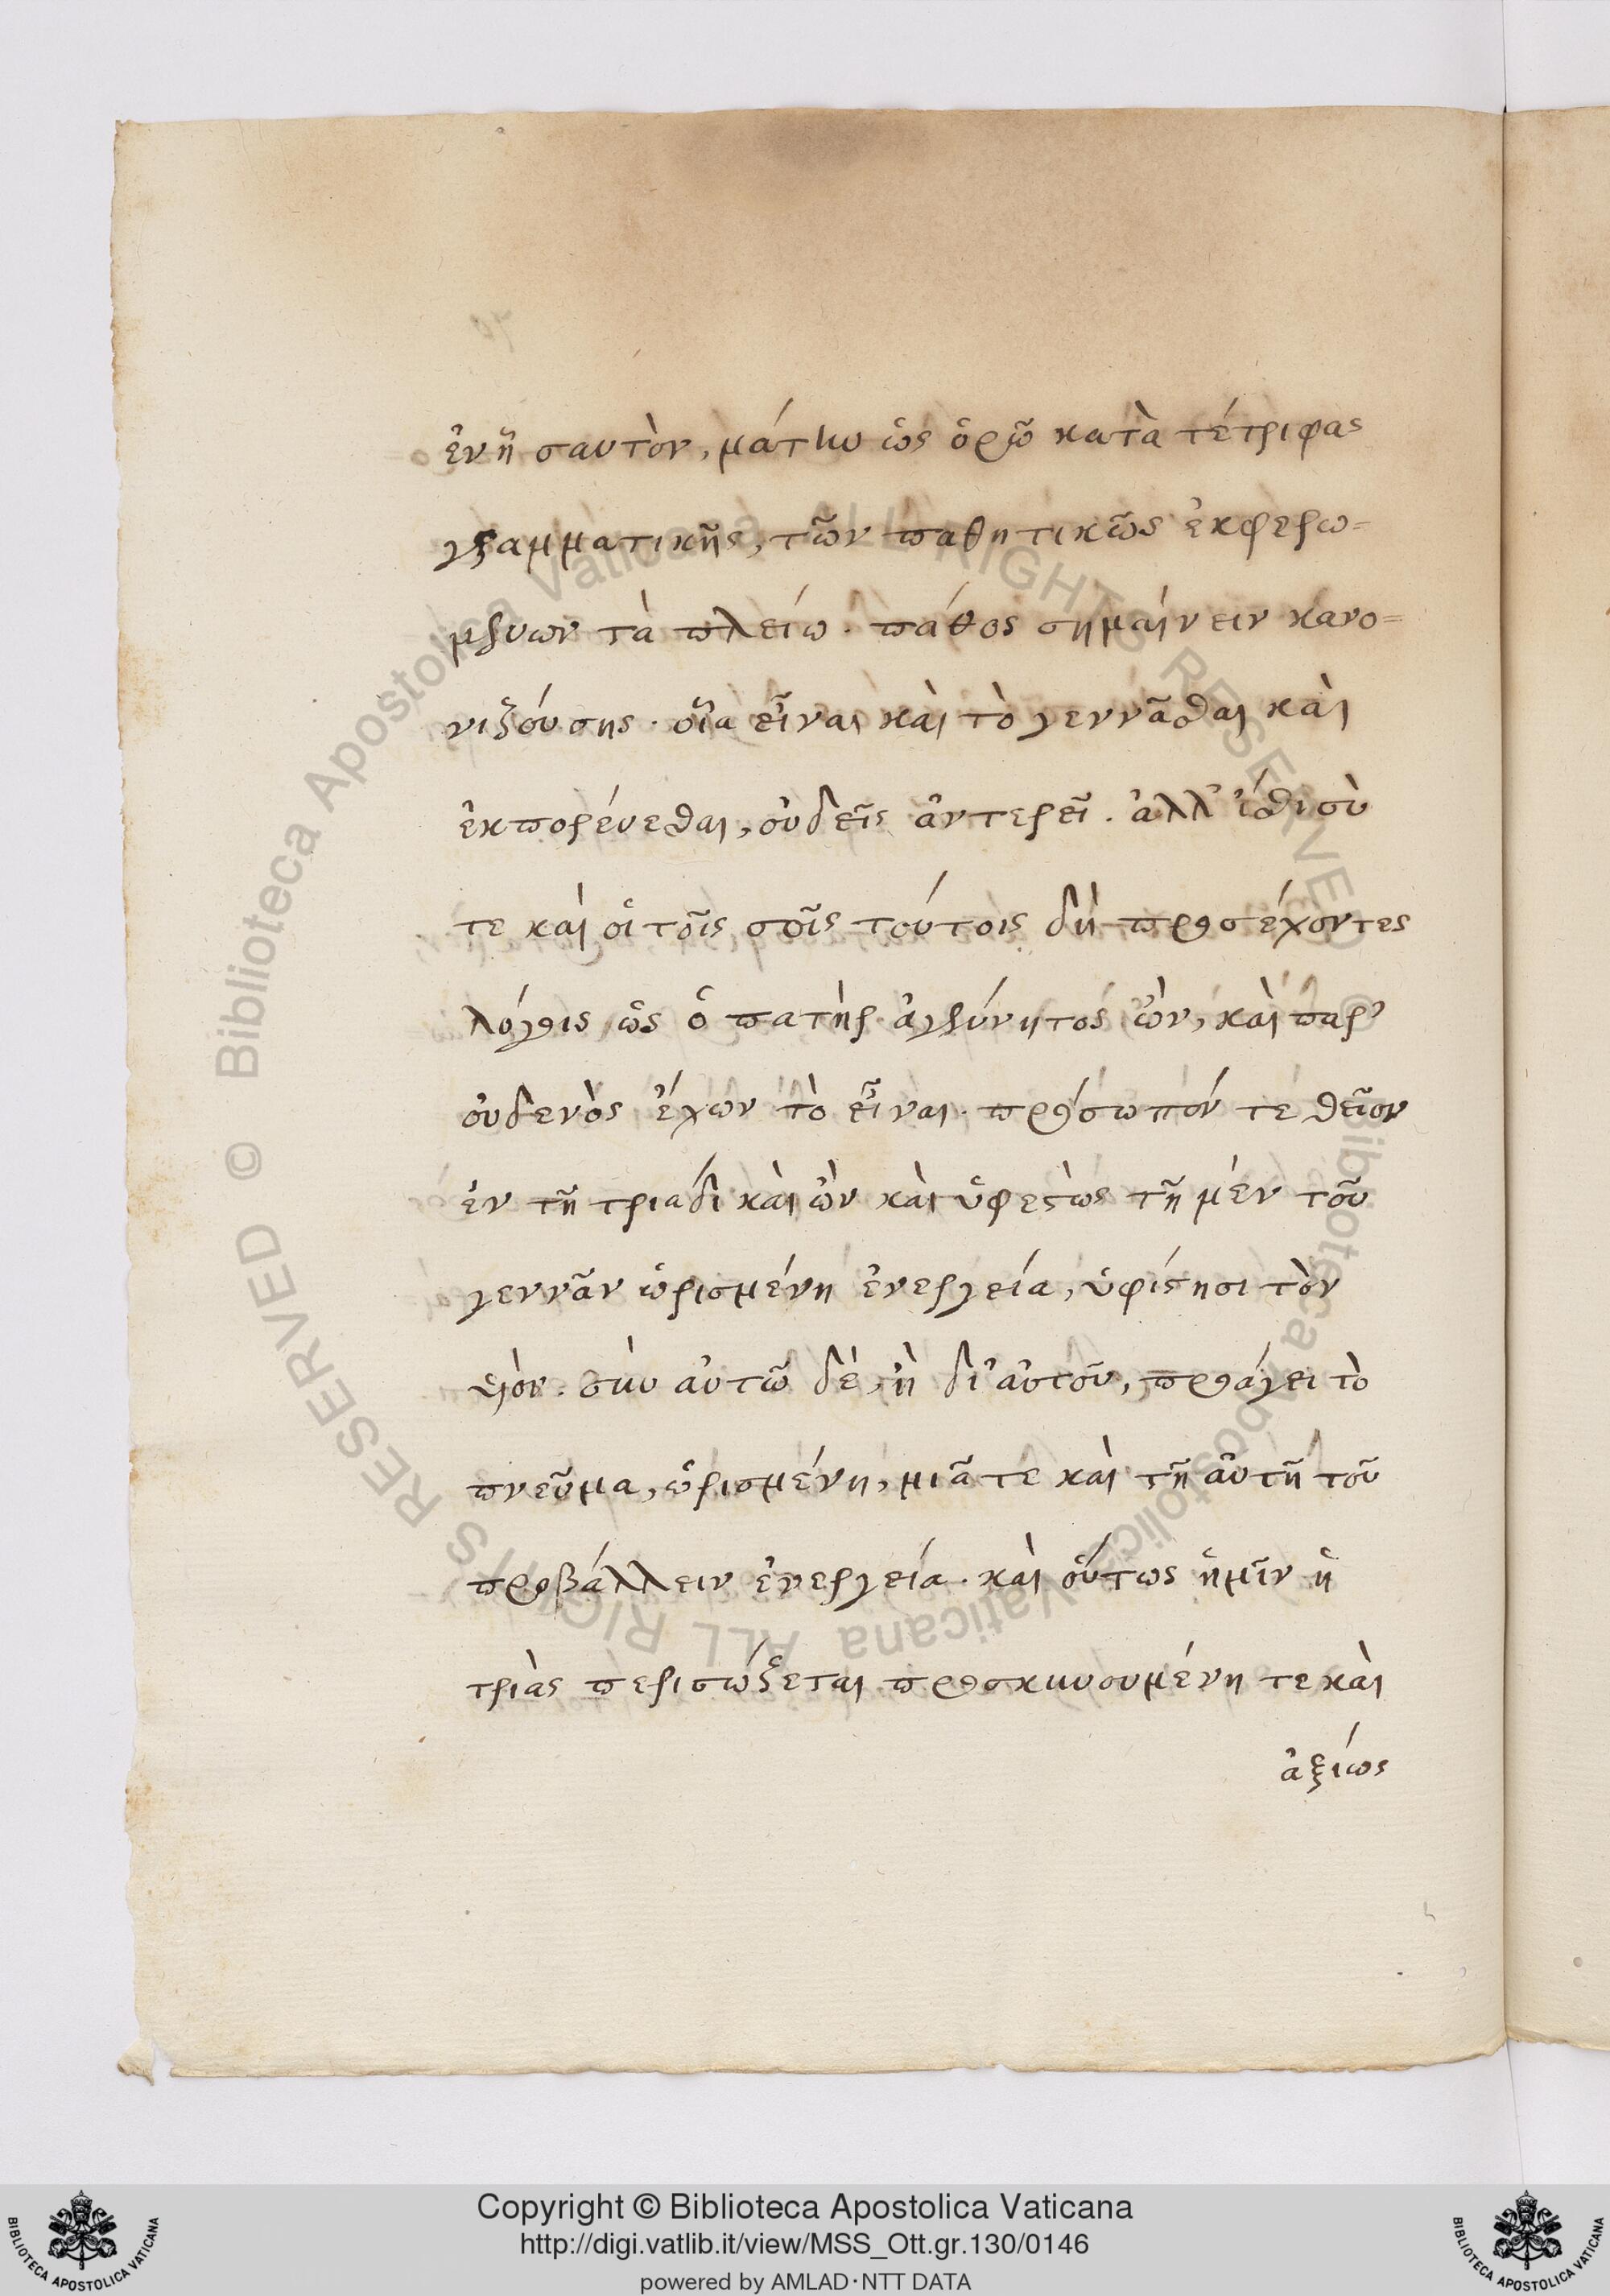 ἐνῆ σαυτὸν, μάτην ὡς ὁρῶ κατὰ τέτριφας
γραμματικῆς, τῶν παθητικῶς ἐκφερω=
μένων τὰ πλείω. πάθος σημαίνειν κανο=
νιζούσης. οἷα εἶναι καὶ τὸ γεννᾶσθαι καὶ
ἐκπορεύεσθαι, οὐδεὶς ἀντερεῖ. ἀλλ' ἴσθι σὺ
τε καὶ οἱ τοῖς σοῖς τούτοις δὴ προσέχοντες
λόγοις, ὡς ὁ πατὴρ ἀγέννητος ὢν, καὶ παρ'
οὐδενὸς ἔχων τὸ εἶναι. πρόσωπόν τε θεῖον
ἐν τῆ τριάδι καὶ ὢν καὶ ὑφεστὼς τῆ μὲν τοῦ
γεννᾶν ὡρισμένη ἐνεργεία, ὑφίστησι τὸν
υἱόν. σὺν αὐτῶ δὲ, ἢ δι' αὐτοῦ, προάγει τὸ
πνεῦμα, ὡρισμένη, μιᾶ τε καὶ τῆ αὐτῆ τοῦ
προβάλλειν ἐνεργεία. καὶ οὕτως ἡμῖν ἡ
τριὰς περισώζεται προσκυνουμένη τε καὶ
ἀξίως
Copyright © Biblioteca Apostolica Vaticana
http://digi.vatlib.it/view/MSS_Ott.gr.130/0146
powered by AMLAD·NTT DATA
BIBLIOTECA APOSTOLICA VATICANA
BIBLIOTECA APOSTOLICA VATICANA
© Biblioteca Apostolica Vaticana ALL RIGHTS RESERVED
© Biblioteca Apostolica Vaticana ALL RIGHTS RESERVED